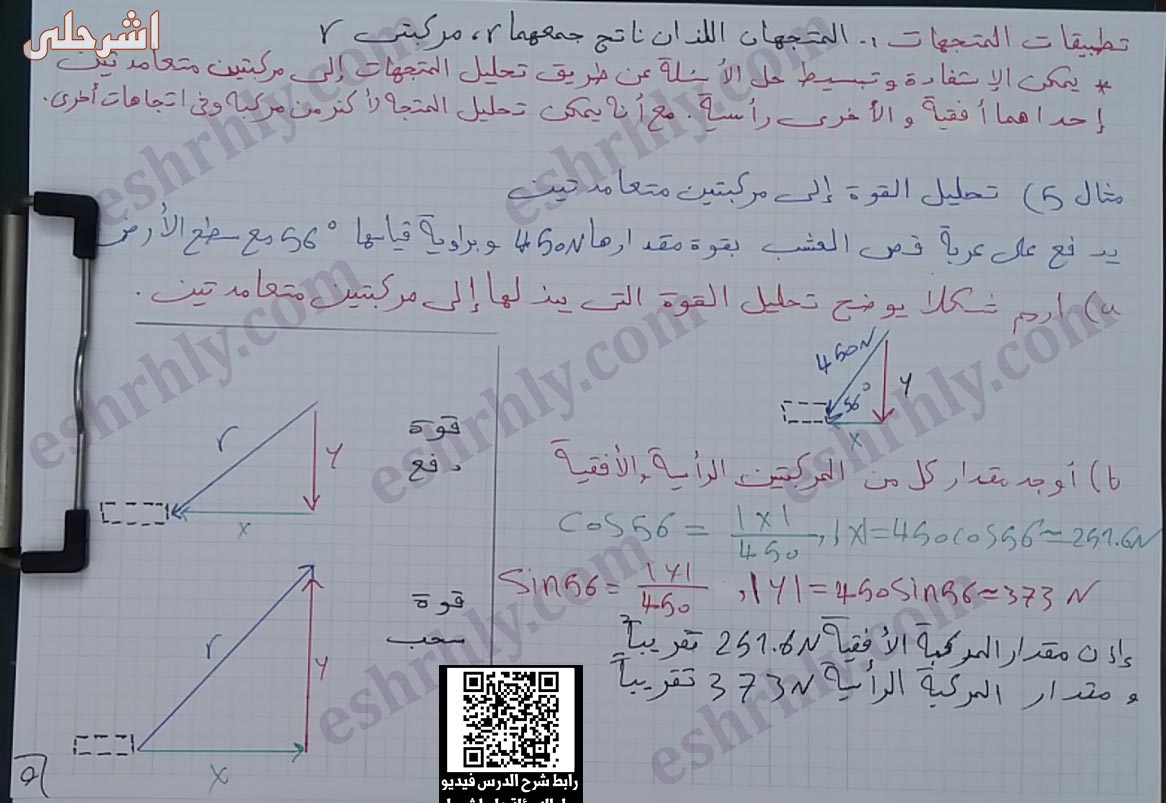 اشرحلي
تطبيقات المتجهات :- المتجهان اللذان ناتج جمعهما r، مركبتي r
* يمكن الإستفادة وتبسيط حل الأسئلة عن طريق تحليل المتجهات إلى مركبتين متعامدتين
إحداهما أفقية والأخرى رأسية. مع أنه يمكن تحليل المتجه لأكثر من مركبة وفي اتجاهات أخرى.
مثال 5) تحليل القوة إلى مركبتين متعامدتين
يدفع علي عربة قص العشب بقوة مقدارها 450N وبزاوية قياسها 56° مع سطح الأرض
a) ارسم شكلا يوضح تحليل القوة التي يبذلها إلى مركبتين متعامدتين.
450N
56°
y
x
b) أوجد مقدار كل من المركبتين الرأسية والأفقية
cos56 = |x|/450 , |x|=450cos56≈251.6N
sin56 = |y|/450 , |y|=450sin56≈373 N
إذن مقدار المركبة الأفقية 251.6N تقريباً
و مقدار المركبة الرأسية 373N تقريباً
قوة
دفع
r
y
x
قوة
سحب
r
y
x
رابط شرح الدرس فيديو
eshrhly.com
eshrhly.com
eshrhly.com
eshrhly.com
eshrhly.com
eshrhly.com
eshrhly.com